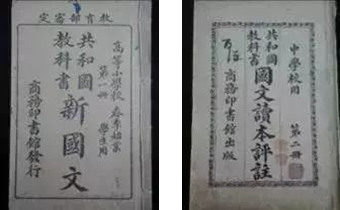 教育部審定
高等小學校 春季始業
第一冊 學生用
共和國
教科書
新國文
商務印書館發行
中學校用
第二冊
共和國
教科書
國文讀本評註
商務印書館出版